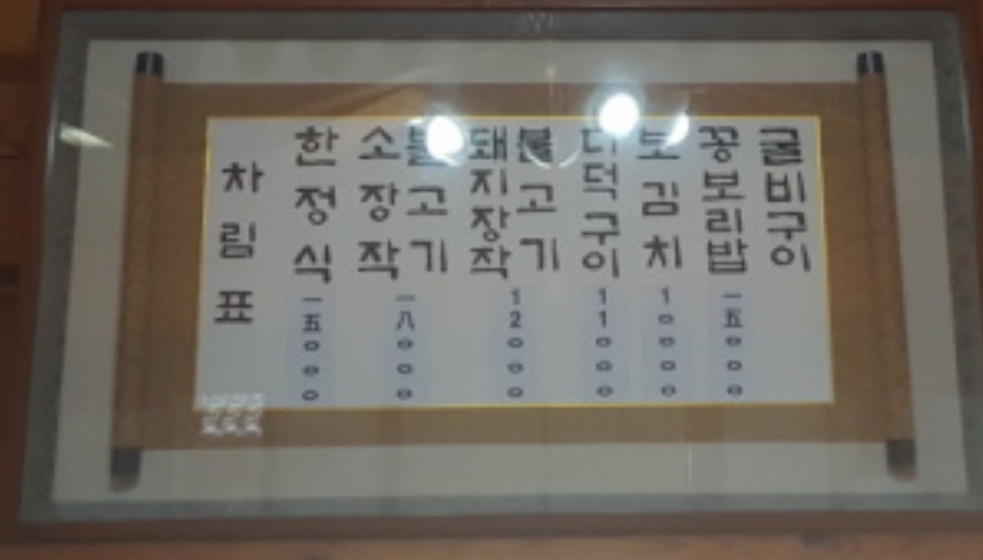 차림표
한정식
一五000
소장작
불고기
一八000
돼지장작
불고기
12000
더덕구이
11000
보김치
10000
꽁보리밥
一五000
굴비구이